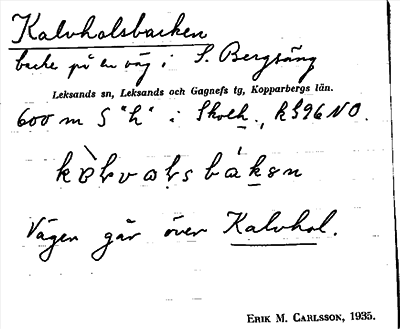 Kalvholsbacken
backe på en väg i S. Bergsäng
Leksands sn, Leksands och Gagnefs tg, Kopparbergs län.
600 m S "h" i Skolh., k 896 NO.
Vägen går över Kalvhol.
ERIK M. CARLSSON, 1935.